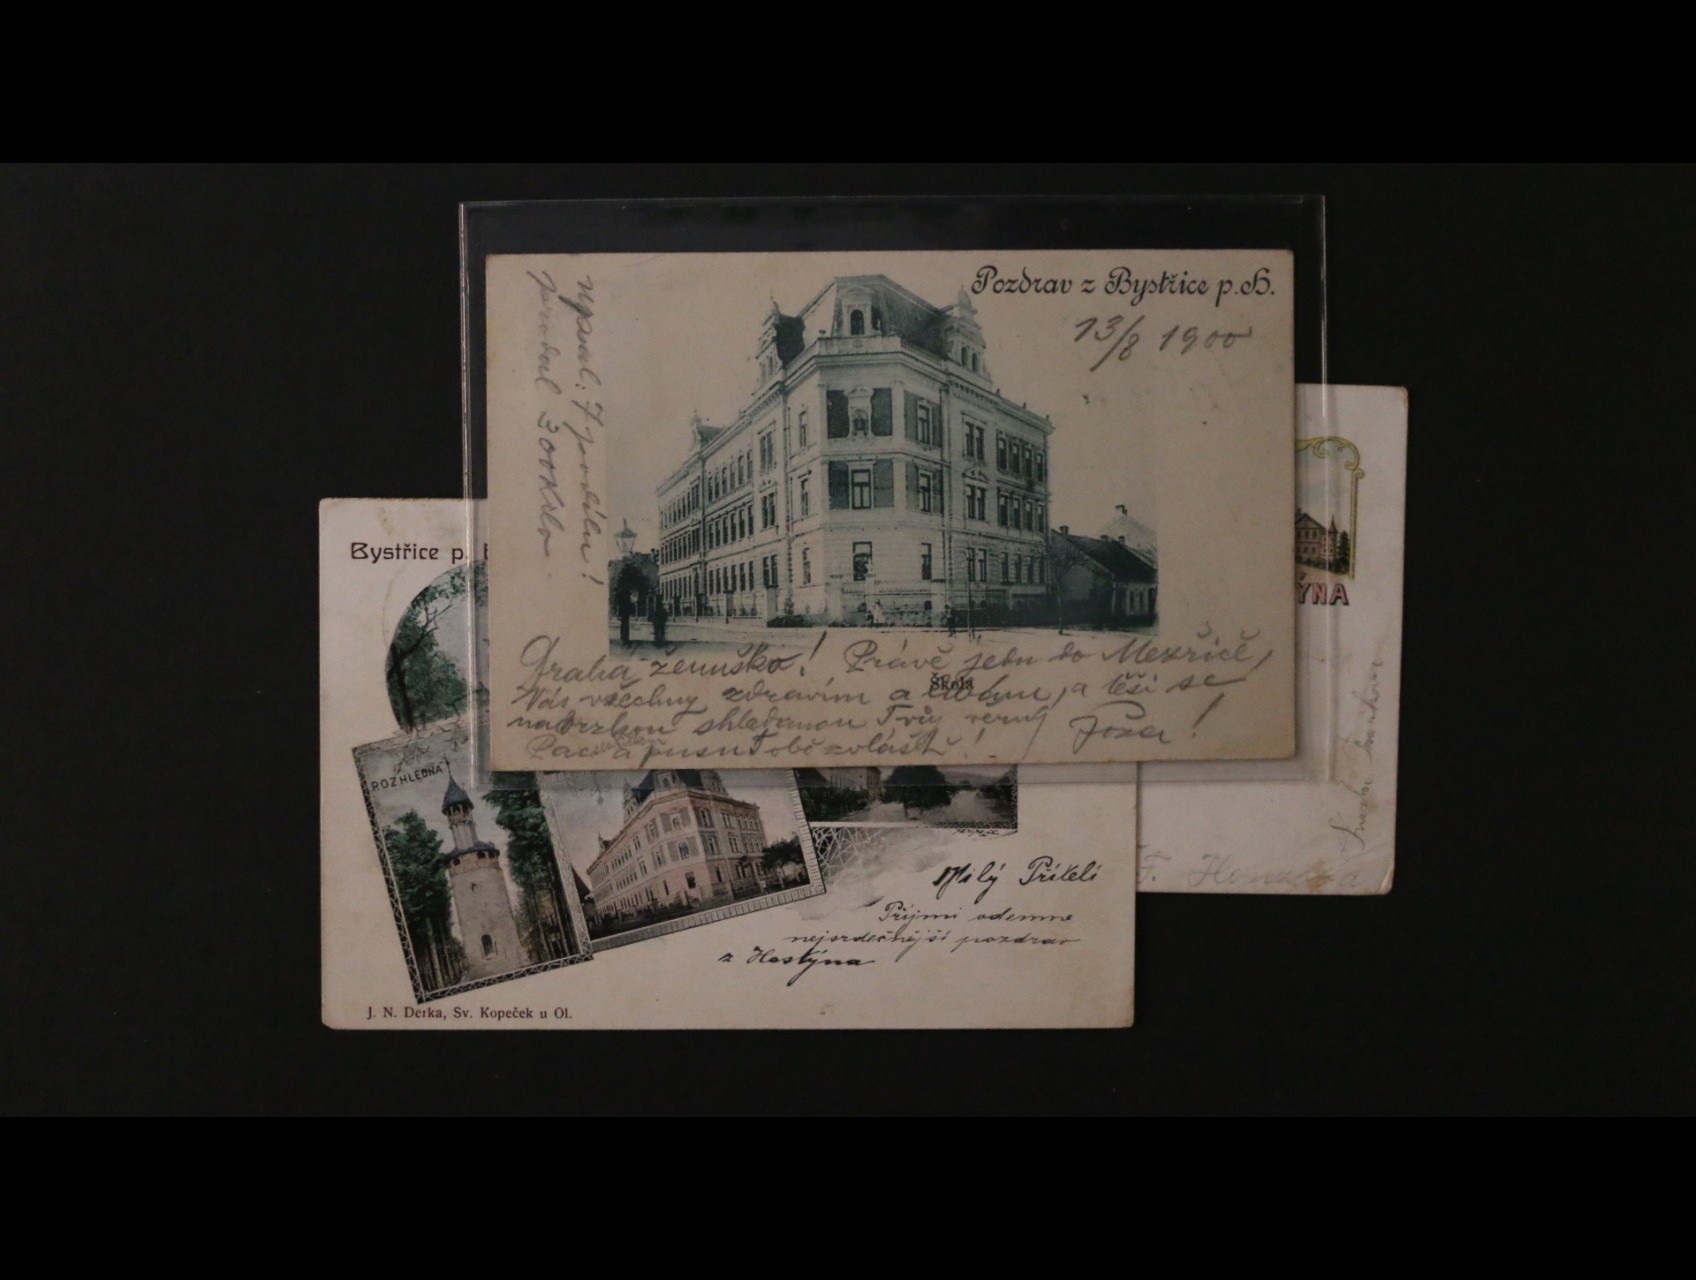 Pozdrav z Bystřice p. H.
13/8 1900
prodal 300 Klo
Drahá ženuško! Právě jedu do Meziřičí,
Škola
Vás všechny zdravím a líbám, a těší se
na brzkou shledanou Tvůj věrný
Pac a pusu Tobě zvláště!
Bystřice p.
ÝNA
ROZHLEDNA
Milý Příteli
Přijmi odemne
nejsrdečnější pozdrav
z Hostýna
J. N. Derka, Sv. Kopeček u Ol.